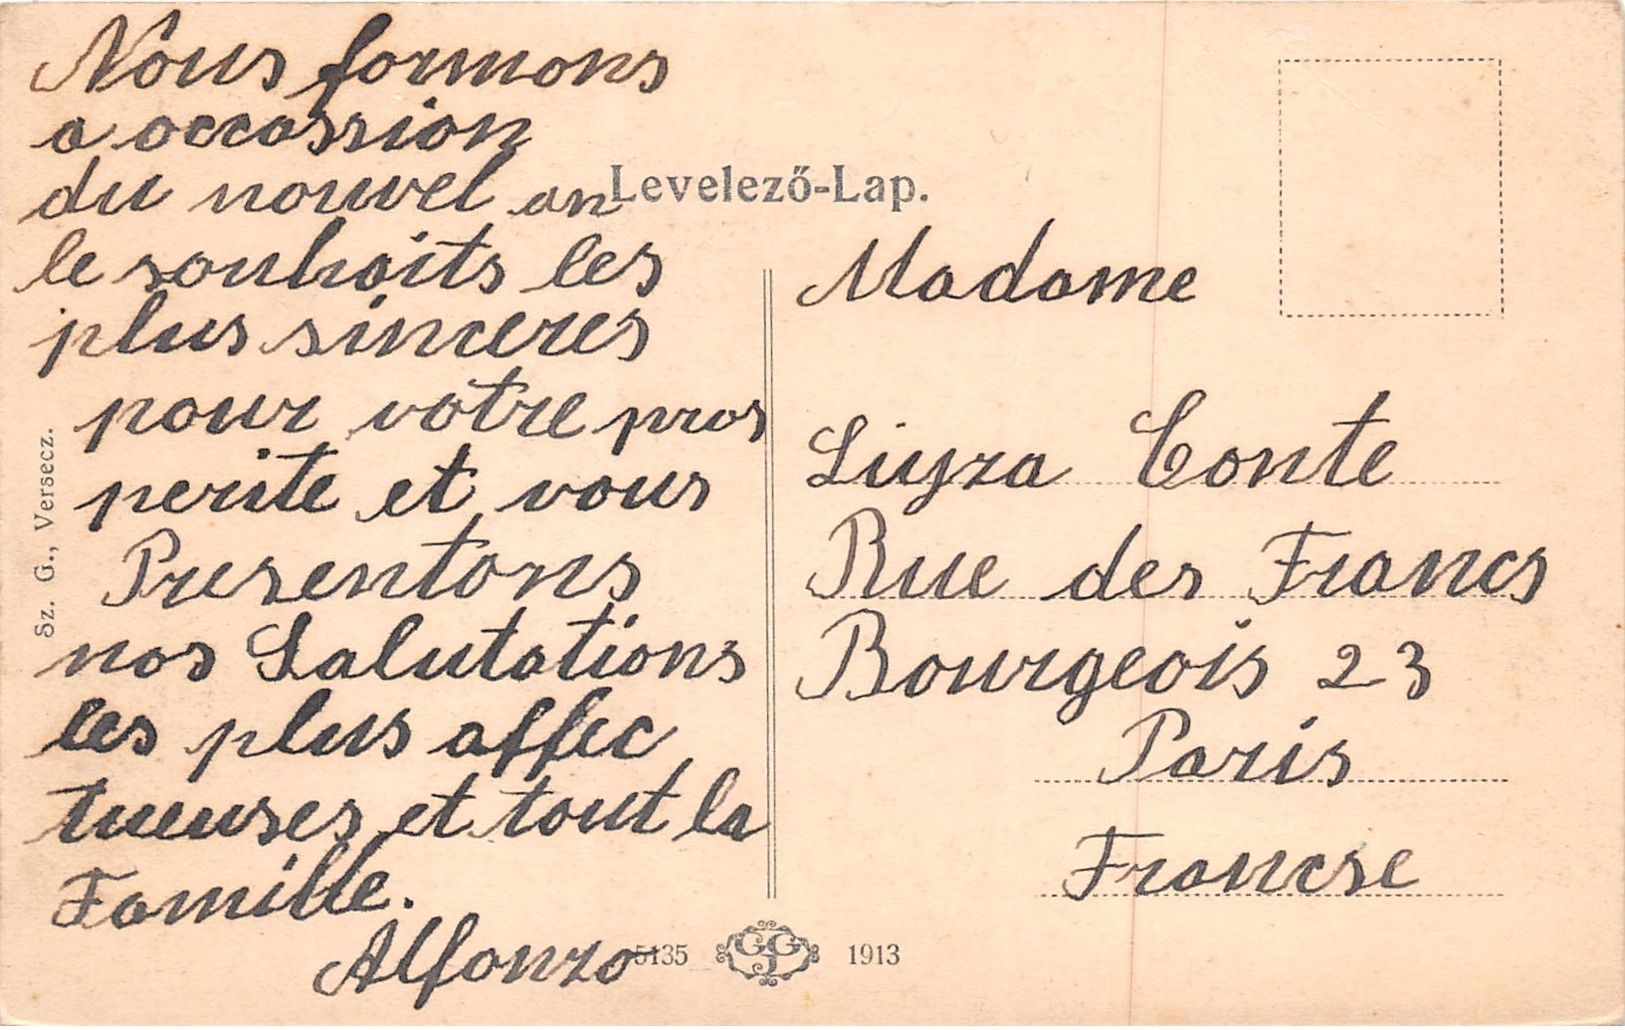 Nous formons
a occassion
du nouvel an
le souhaits les
plus sinceres
pour votre pros
perite et vous
Presentons
nos Salutations
les plus affec
tueuses et tout la
Famille.
Alfonzo
Levelező-Lap.
Madame
Luyza Conte
Rue des Francs
Bourgeois 23
Paris
Francse
Sz. G., Versecz.
5135 GJG 1913